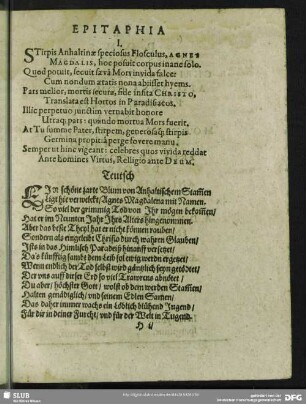 EPITAPHIA
I.
STirpis Anhaltinæ speciosus Flosculus, AGNES
MAGDALIS, hoc posuit corpus inane solo.
Quod potuit, secuit sæva Mors invida falce:
Cum nondum ætatis nona abiisset hyems.
Pars melior, mortis secura, fide insita CHRISTO,
Translata est Hortos in Paradisiacos.
Illic perpetuo junctim vernabit honore
Utraq; pars: quando mortua Mors fuerit.
At Tu summe Pater, stirpem, generosaq; stirpis
Germina propitiâ perge fovere manu.
Semper ut hinc vigeant: celebres quos vivida reddat
Ante homines Virtus, Relligio ante DEUM.
Teutsch
EJn schöne zarte Blum von Anhaltischem Stam̃en
Ligt hie verwelckt/ Agnes Magdalena mit Namen.
So viel der grimmig Tod von Ihr mögen bekom̃en/
Hat er im Neunten Jahr Ihrs Alters hingenommen.
Aber das beste Theyl hat er nicht können rauben/
Sondern als eingeleibt Christo durch wahren Glauben/
Ists in das Himlisch Paradeiß hinauff versetzet/
Da's künfftig sambt dem Leib sol ewig werden ergetzet/
Wenn endlich der Tod selbst wird gäntzlich seyn getödtet/
Der uns auff dieser Erd so viel Trawrens
Du aber/ höchster Gott/ wolst ob dem werden Stam̃en/
Halten genädiglich/ und seinem Edlen Samen/
Das daher immer wachs ein Löblich blühend Jugend/
Für dir in deiner Furcht/ und für der Welt in Tugend.
SLUB
DFG